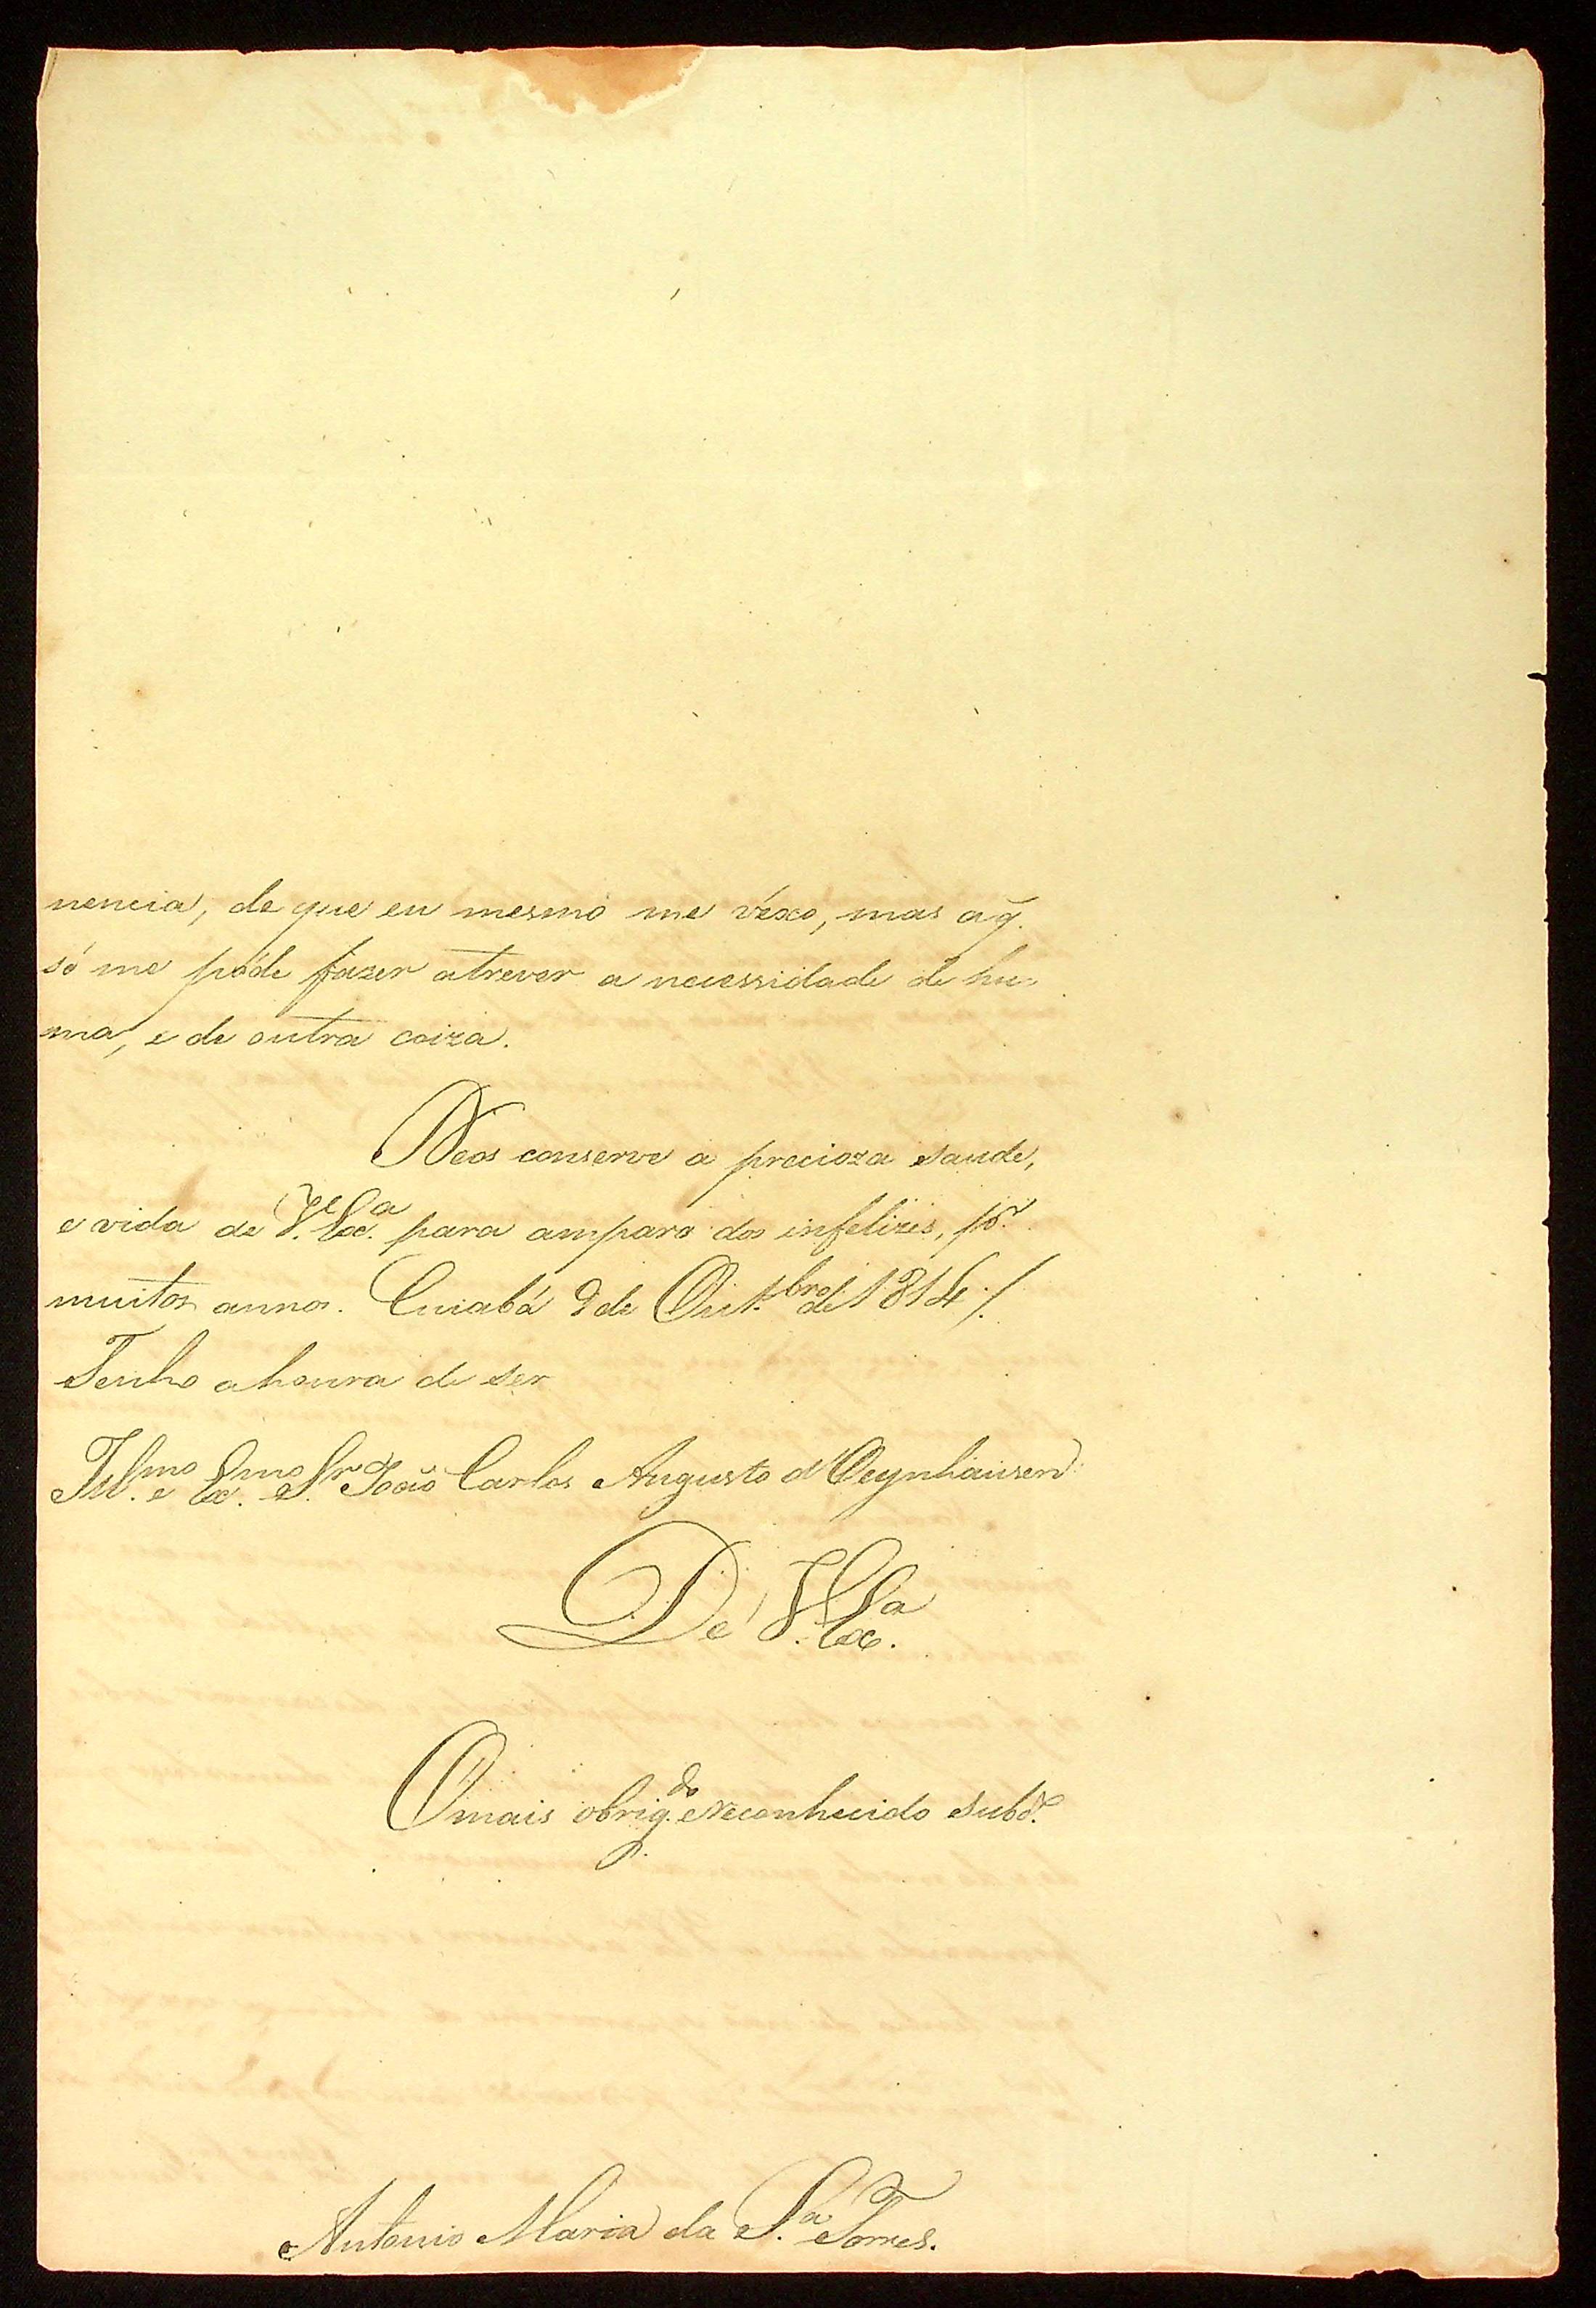 nencia, de que eu mesmo me véxo, mas aq̃.
só me póde fazer atrever a necessidade de hu=
ma, e de outra coiza.
Deos conserve a precioza saude,
e vida de V. Exc.ª para amparo dos infelizes, p.r
muitos annos. Cuiabá 9 de Out.bro de 1814./.
Tenho a honra de ser
Ill.mo e Ex.mo S.r João Carlos Augusto d'Oeynhausen
De V. Exc.ª
O mais obrig.do e reconhecido subd.º
Antonio Maria da S.ª Torres.